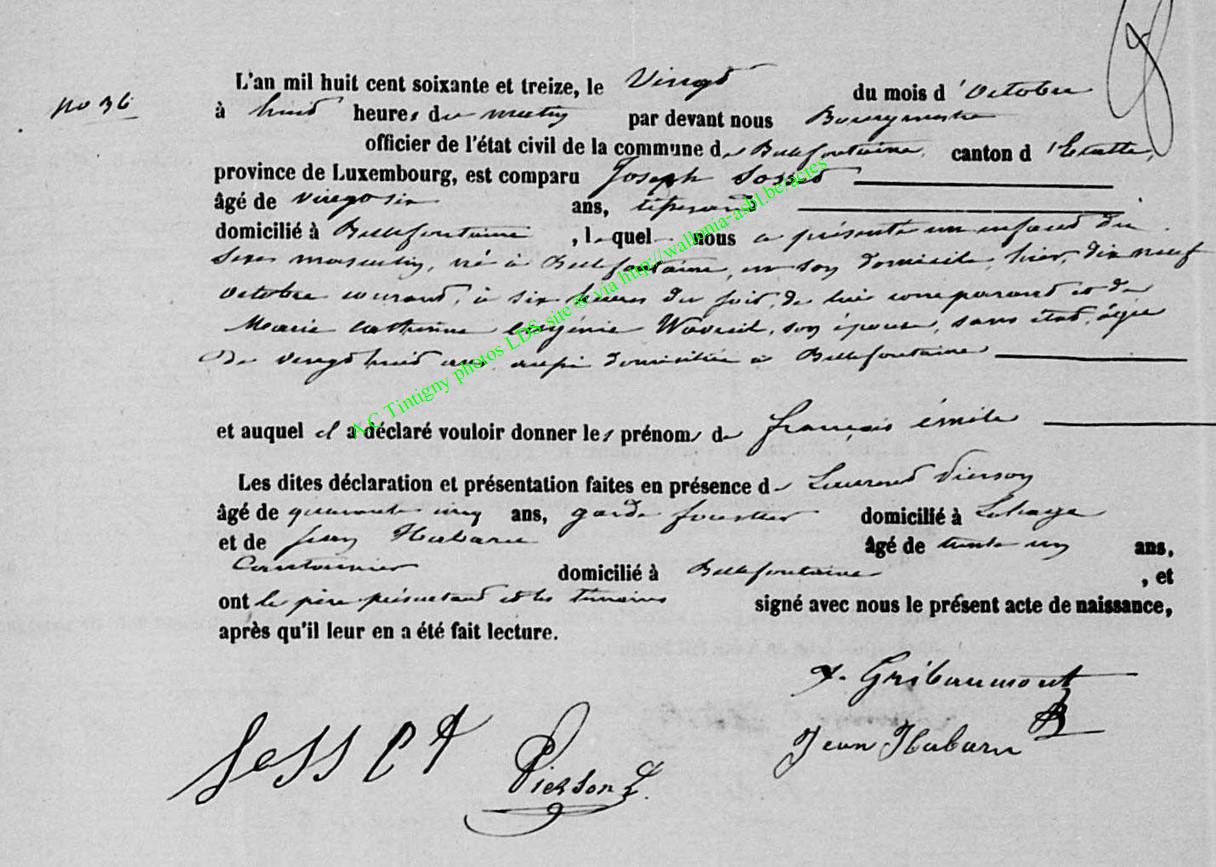 no 36
L'an mil huit cent soixante et treize, le Vingt du mois d'octobre
à huit heures du matin par devant nous Bourgmestre
officier de l'état civil de la commune de Bellefontaine, canton d'Etalle,
province de Luxembourg, est comparu Joseph
âgé de vingt six ans, tisserand
domicilié à Bellefontaine, lequel nous a présenté un enfant du
sexe masculin, né à Bellefontaine, en son domicile, hier, dix neuf
octobre courant, à six heures du soir, de lui comparant et de
Marie Catherine Eugénie, son épouse, sans état, âgée
de vingt huit ans, aussi domiciliée à Bellefontaine
et auquel il a déclaré vouloir donner les prénoms de françois émile
Les dites déclaration et présentation faites en présence de Laurent Pierson
âgé de quarante cinq ans, garde forestier domicilié à Lahage
et de Jean Habaru âgé de trente un ans,
Cantonnier domicilié à Bellefontaine, et
ont le père présentant et les témoins signé avec nous le présent acte de naissance,
après qu'il leur en a été fait lecture.
Gribaumont
Jean Habaru
Pierson L.
A.C Tintigny photos LDS site & via http://wallonia-asbl.be/actes